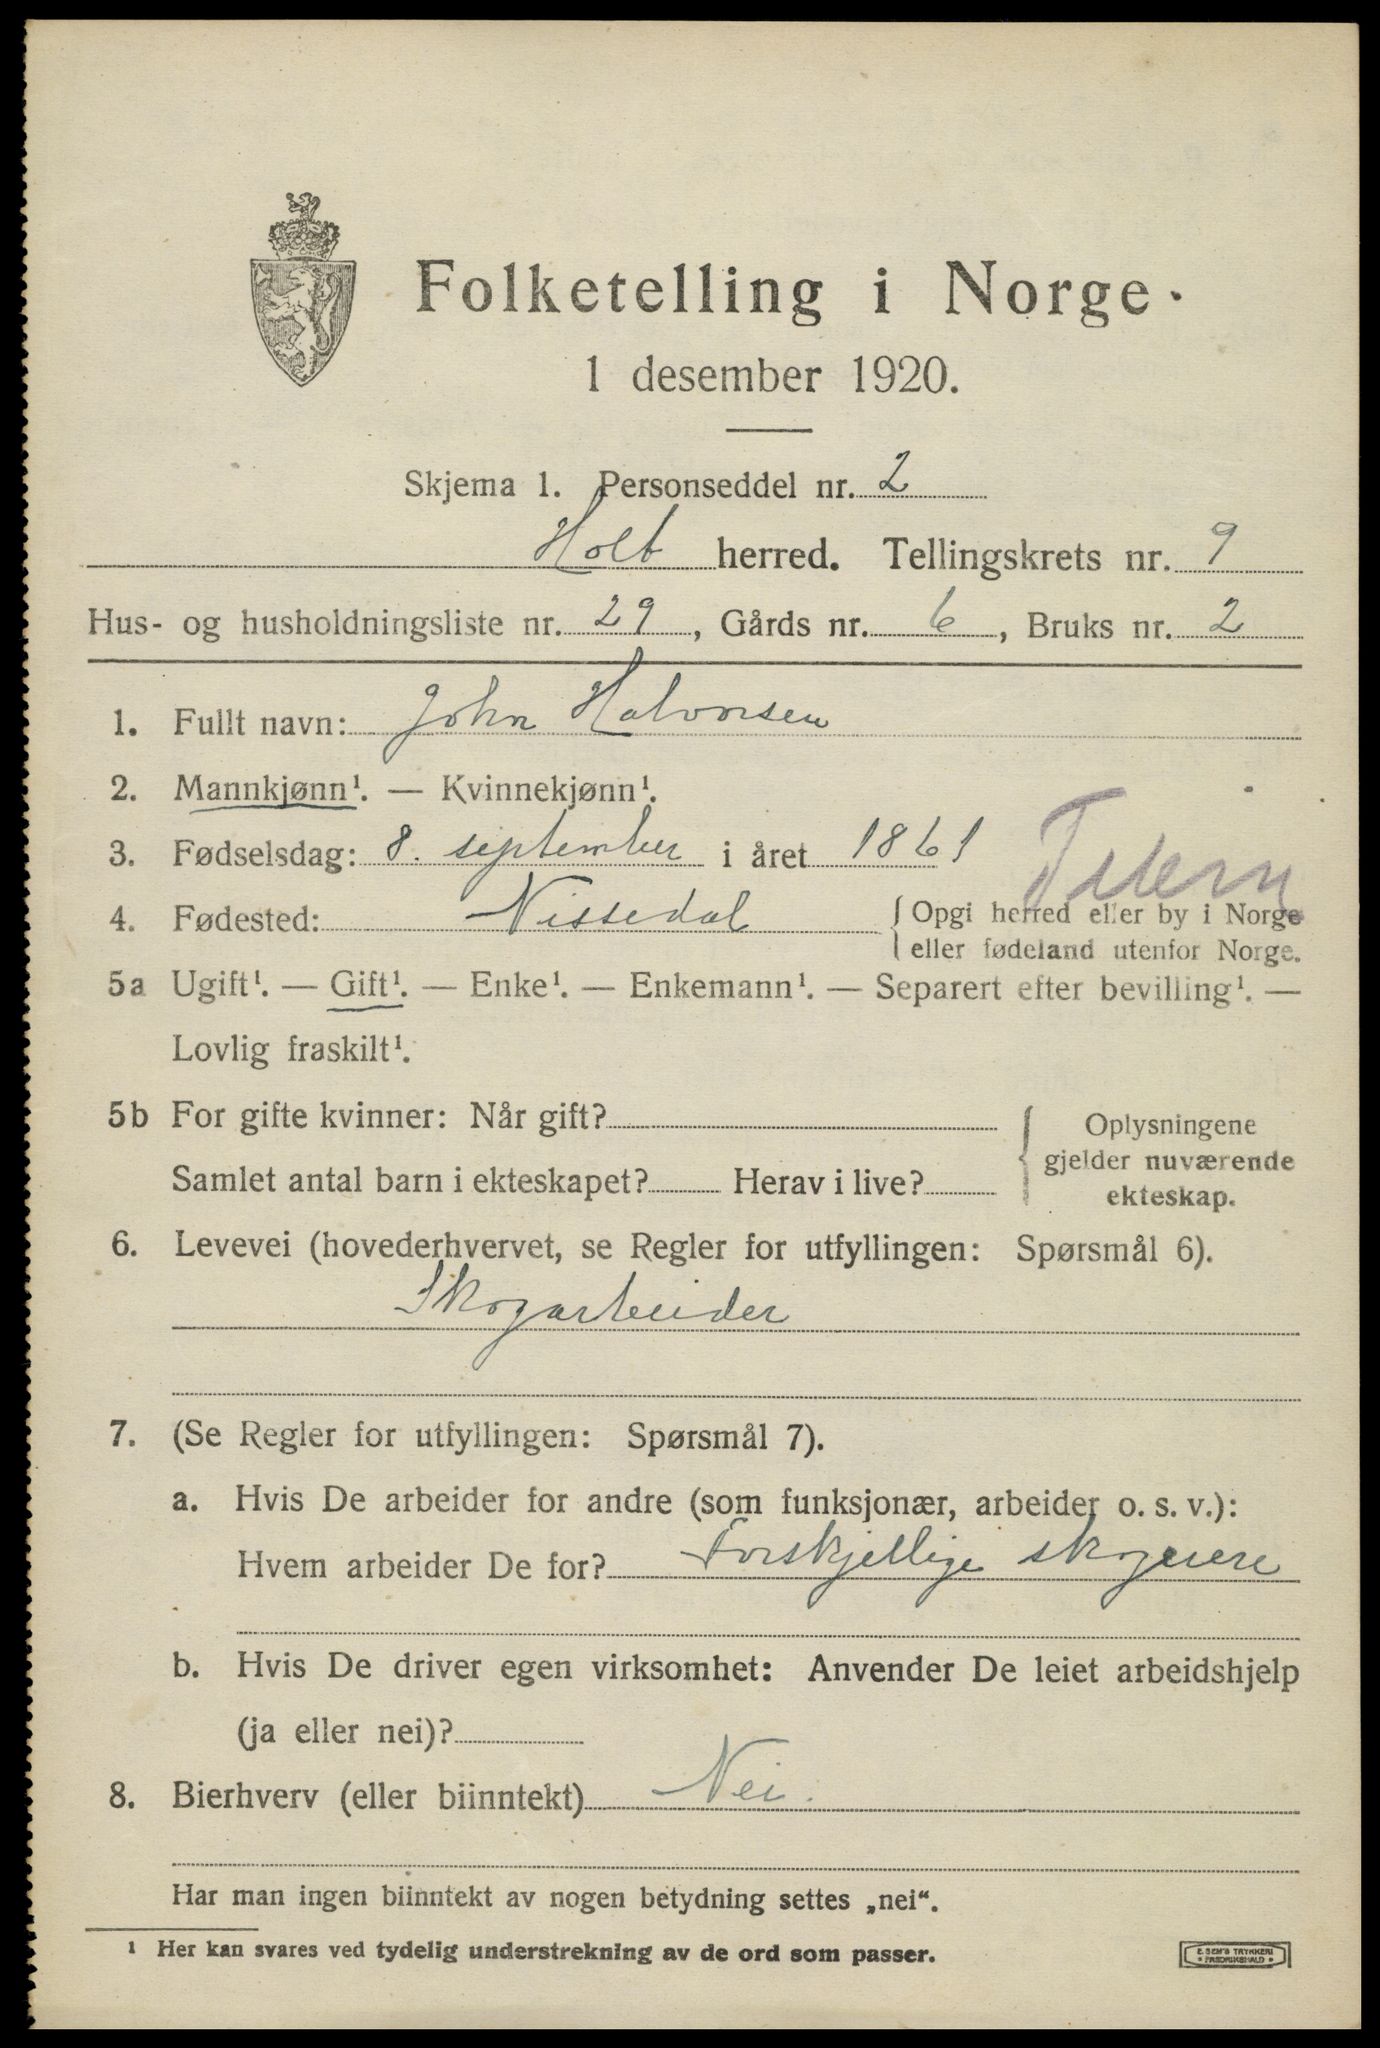 Folketelling i Norge.
1 desember 1920.
Skjema 1. Personseddel nr. 2
Holt herred. Tellingskrets nr. 9
Hus- og husholdningsliste nr. 29, Gårds nr. 6, Bruks nr. 2
1. Fullt navn: John Halvorsen
2. Mannkjønn¹. — Kvinnekjønn¹.
3. Fødselsdag: 8. september i året 1861
4. Fødested: Nissedal { Opgi herred eller by i Norge
eller fødeland utenfor Norge.
5a Ugift¹. — Gift¹. — Enke¹. — Enkemann¹. — Separert efter bevilling¹. —
Lovlig fraskilt¹.
5b For gifte kvinner: Når gift?
Samlet antal barn i ekteskapet? Herav i live?
{ Oplysningene
gjelder nuværende
ekteskap.
6. Levevei (hovederhvervet, se Regler for utfyllingen: Spørsmål 6).
Skogarbeider
7. (Se Regler for utfyllingen: Spørsmål 7).
a. Hvis De arbeider for andre (som funksjonær, arbeider o. s. v.):
Hvem arbeider De for? Forskjellige skogeiere
b. Hvis De driver egen virksomhet: Anvender De leiet arbeidshjelp
(ja eller nei)?
8. Bierhverv (eller biinntekt) Nei.
Har man ingen biinntekt av nogen betydning settes „nei“.
¹ Her kan svares ved tydelig understrekning av de ord som passer.
E. SEM'S TRYKKERI
• FREDRIKSHALD •